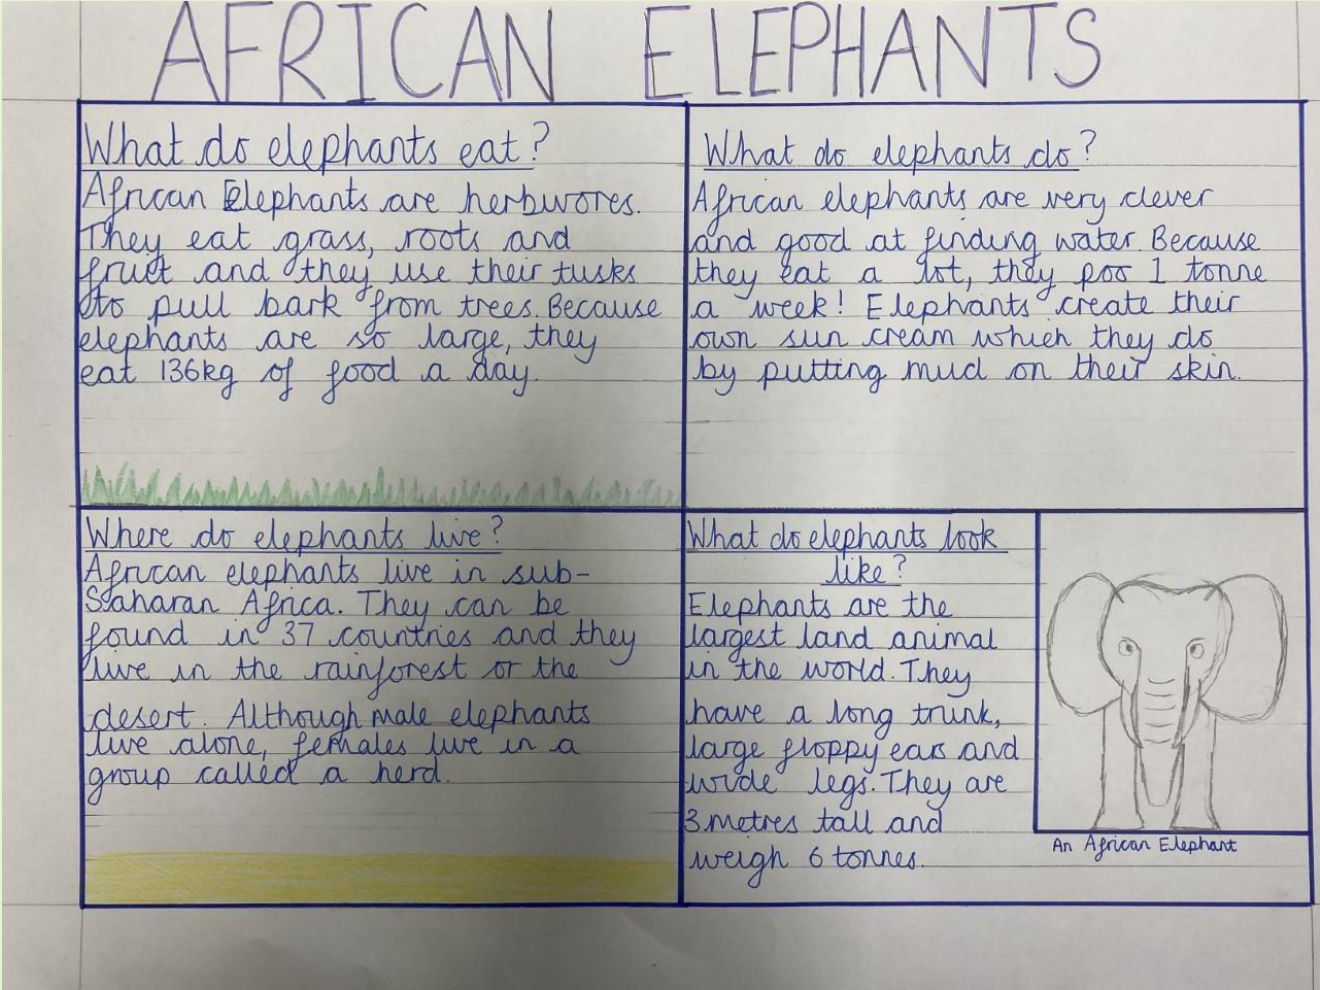 AFRICAN ELEPHANTS
What do elephants eat?
African Elephants are herbivores.
They eat grass, roots and
fruit and they use their tusks
to pull bark from trees. Because
elephants are so large, they
eat 136kg of food a day.
What do elephants do?
African elephants are very clever
and good at finding water. Because
they eat a lot, they poo 1 tonne
a week! Elephants create their
own sun cream which they do
by putting mud on their skin.
Where do elephants live?
African elephants live in sub-
Saharan Africa. They can be
found in 37 countries and they
live in the rainforest or the
desert. Although male elephants
live alone, females live in a
group called a herd.
What do elephants look
like?
Elephants are the
largest land animal
in the world. They
have a long trunk,
large floppy ears and
wide legs. They are
3 metres tall and
weigh 6 tonnes.
An African Elephant